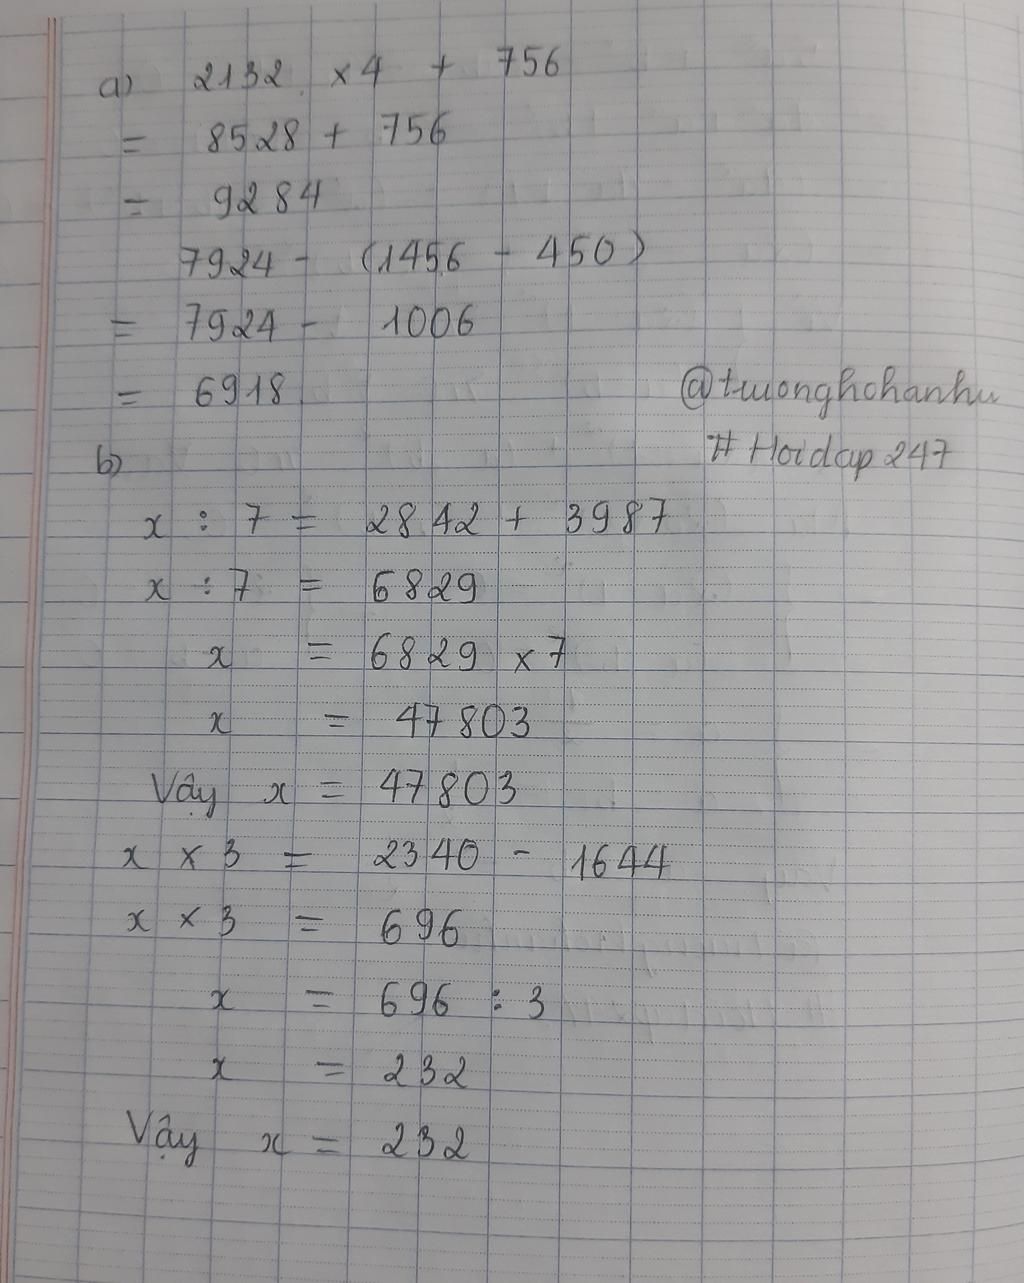 a) 2132 × 4 + 756
= 8528 + 756
= 9284
7924 - (1456 - 450)
= 7924 - 1006
= 6918
@tuonghohanhu
# Hoidap 247
b)
x : 7 = 2842 + 3987
x : 7 = 6829
x = 6829 × 7
x = 47803
Vậy x = 47803
x × 3 = 2340 - 1644
x × 3 = 696
x = 696 : 3
x = 232
Vậy x = 232